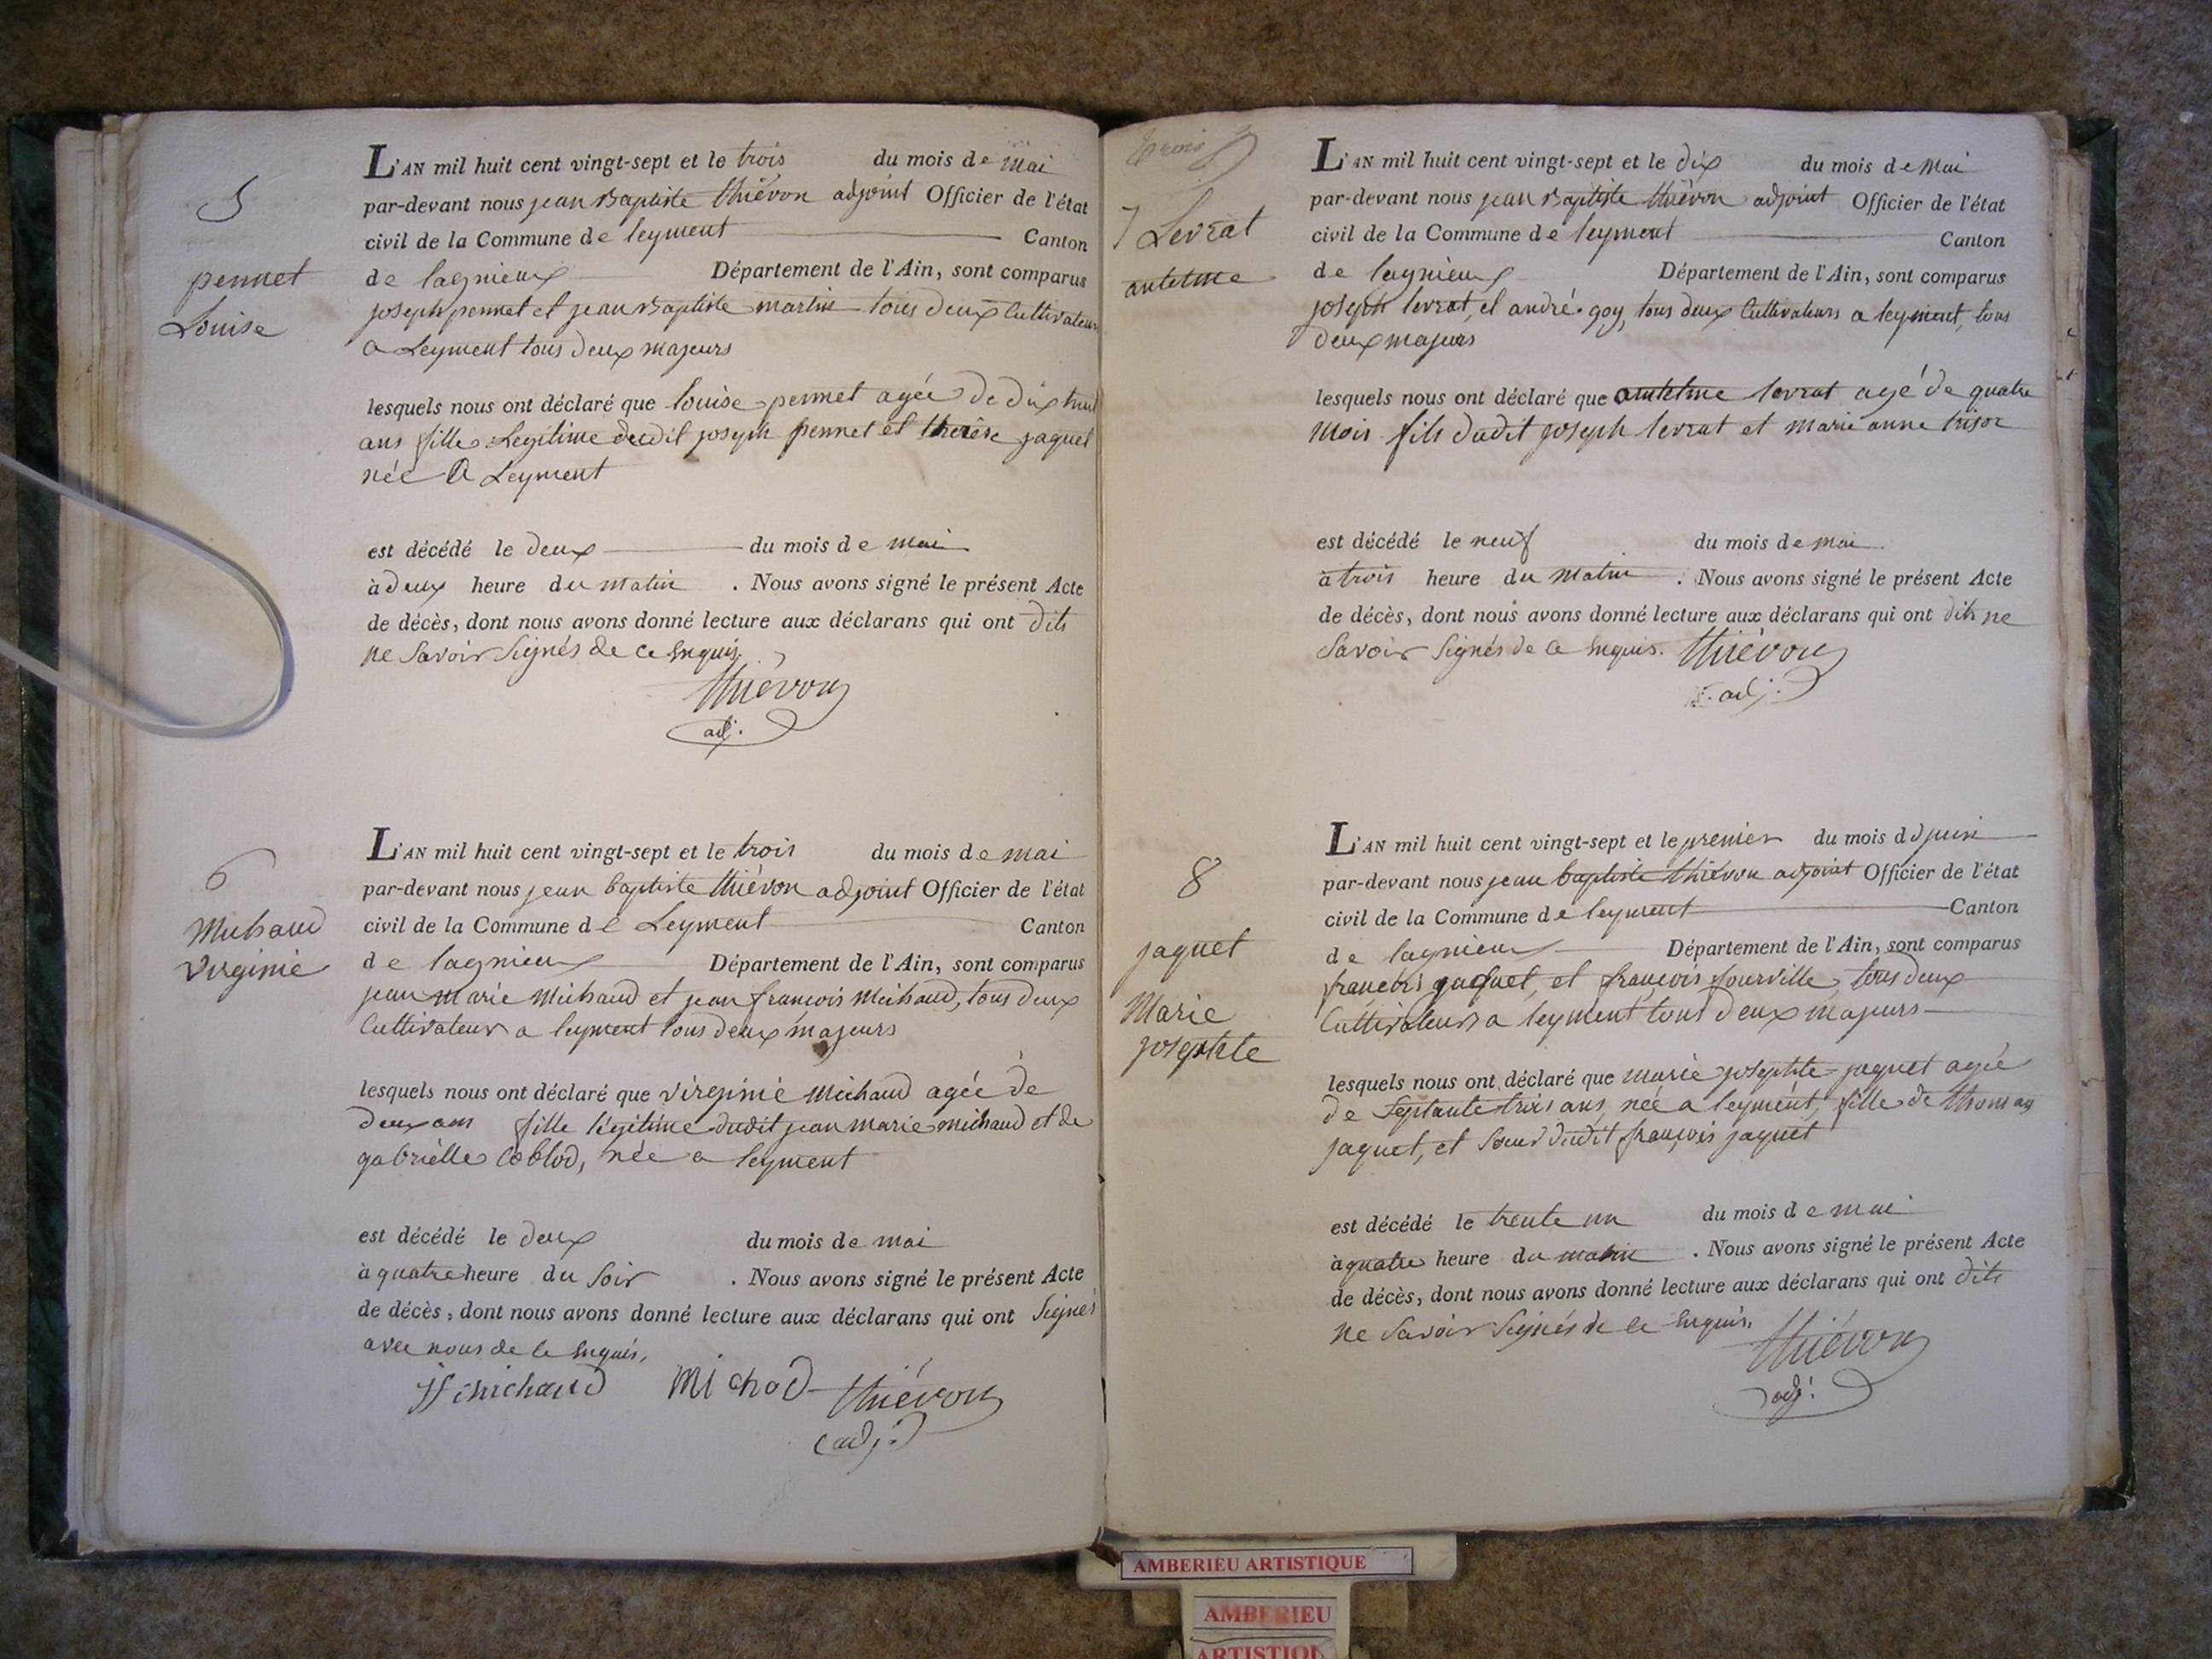 5
pennet
Louise
L'AN mil huit cent vingt-sept et le trois du mois de mai
par-devant nous jean Baptiste thiévon adjoint Officier de l'état
civil de la Commune de leyment Canton
de lagnieux Département de l'Ain, sont comparus
joseph pennet et jean Baptiste martin tous deux Cultivateurs
a Leyment tous deux majeurs
lesquels nous ont déclaré que louise pennet agée de dix huit
ans fille Legitime dudit joseph pennet et therèse jaquet
née a Leyment
est décédé le deux du mois de mai
à deux heure du matin . Nous avons signé le présent Acte
de décès, dont nous avons donné lecture aux déclarans qui ont dits
ne Savoir Signés de ce Enquis.
thiévon
adj.
6
Michaud
virginie
L'AN mil huit cent vingt-sept et le trois du mois de mai
par-devant nous jean baptiste thiévon adjoint Officier de l'état
civil de la Commune de Leyment Canton
de lagnieux Département de l'Ain, sont comparus
jean marie Michaud et jean françois Michaud, tous deux
Cultivateur a leyment tous deux majeurs
lesquels nous ont déclaré que virginie Michaud agée de
deux ans fille légitime dudit jean marie michaud et de
gabrielle Coblod, née a leyment
est décédé le deux du mois de mai
à quatre heure du Soir . Nous avons signé le présent Acte
de décès, dont nous avons donné lecture aux déclarans qui ont Signés
avec nous de ce Enquis.
michaud Michod thiévon
adj.
trois
7 Levrat
antelme
L'AN mil huit cent vingt-sept et le dix du mois de Mai
par-devant nous jean Baptiste thiévon adjoint Officier de l'état
civil de la Commune de leyment Canton
de lagnieux Département de l'Ain, sont comparus
joseph levrat, et andré goy, tous deux Cultivateurs a leyment, tous
deux majeurs
lesquels nous ont déclaré que antelme levrat agé de quatre
mois fils dudit joseph levrat et marie anne trisoz
est décédé le neuf du mois de mai
à trois heure du Matin . Nous avons signé le présent Acte
de décès, dont nous avons donné lecture aux déclarans qui ont dits ne
Savoir Signés de ce Enquis. thiévon
adj.
8
jaquet
Marie
josephte
L'AN mil huit cent vingt-sept et le premier du mois d juin
par-devant nous jean baptiste thiévon adjoint Officier de l'état
civil de la Commune de leyment Canton
de lagnieux Département de l'Ain, sont comparus
françois jaquet, et françois fourville, tous deux
Cultivateurs a leyment tous deux majeurs
lesquels nous ont déclaré que marie josephte jaquet agée
de Septante trois ans, née a leyment, fille de thomas
jaquet, et Soeur dudit françois jaquet
est décédé le trente un du mois de mai
à quatre heure du matin . Nous avons signé le présent Acte
de décès, dont nous avons donné lecture aux déclarans qui ont dits
ne Savoir Signés de ce Enquis.
thiévon
adj.
AMBERIEU ARTISTIQUE
AMBERIEU